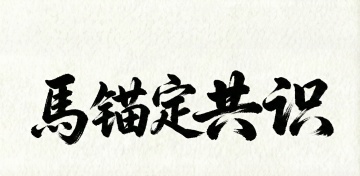 馬锚定共识